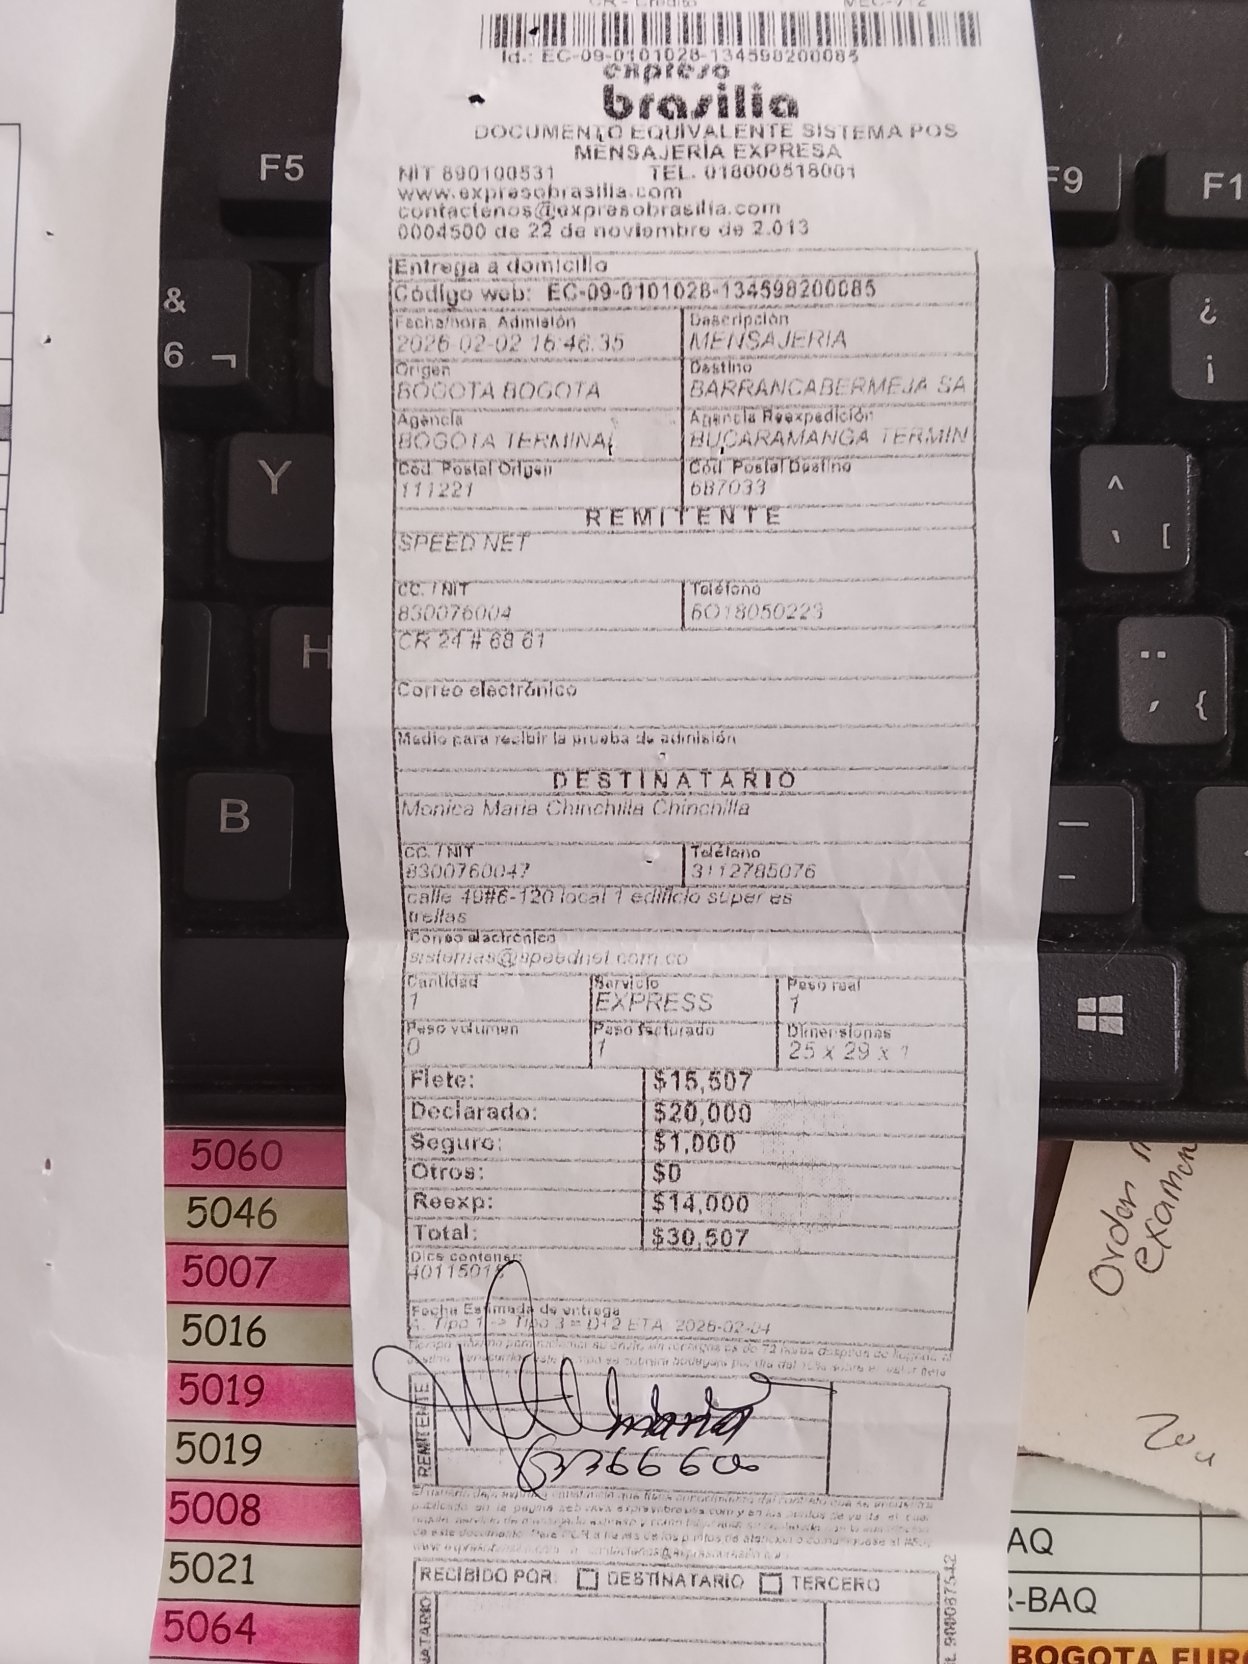 CR - Crédito MEC-712
Id.: EC-09-0101028-134598200085
expreso
brasilia
DOCUMENTO EQUIVALENTE SISTEMA POS
MENSAJERIA EXPRESA
NIT 890100531 TEL. 018000518001
www.expresobrasilia.com
contactenos@expresobrasilia.com
0004500 de 22 de noviembre de 2.013
Entrega a domicilio
Código web: EC-09-0101028-134598200085
Fecha/hora Admisión Descripción
2026-02-02 16:46:35 MENSAJERIA
Origen Destino
BOGOTA BOGOTA BARRANCABERMEJA SA
Agencia Agencia Reexpedición
BOGOTA TERMINAL BUCARAMANGA TERMIN
Cód. Postal Origen Cód. Postal Destino
111221 687033
REMITENTE
SPEED NET
CC. / NIT Teléfono
830076004 6018050223
CR 24 # 68 61
Correo electrónico
Medio para recibir la prueba de admisión
DESTINATARIO
Monica Maria Chinchilla Chinchilla
CC. / NIT Teléfono
8300760047 3112785076
calle 49#6-120 local 1 edificio super es
trellas
Correo electrónico
sistemas@speednet.com.co
Cantidad Servicio Peso real
1 EXPRESS 1
Peso volumen Peso facturado Dimensiones
0 1 25 x 29 x 1
Flete: $15,507
Declarado: $20,000
Seguro: $1,000
Otros: $0
Reexp: $14,000
Total: $30,507
Dice contener:
40115015
Fecha Estimada de entrega
A: Tipo 1 -> Tipo 3 = D+2 ETA: 2026-02-04
REMITENTE
RECIBIDO POR: DESTINATARIO TERCERO
F5
F9
F1
&
6 ¬
¿
¡
Y
^
[
H
¨
{
B
5060
5046
5007
5016
5019
5019
5008
5021
5064
Orden
examen
AQ
R-BAQ
BOGOTA EURO